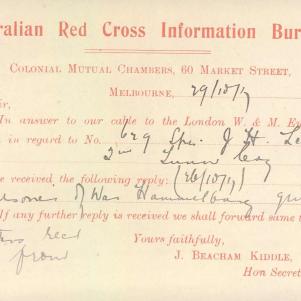 ralian Red Cross Information Bur
Colonial Mutual Chambers, 60 Market Street,
Melbourne, 29/10/17
ir,
In answer to our cable to the London W. & M. E
in regard to No. 629 J H
2nd Tunn Coy
e received the following reply: (26/10/17)
Prisoner of War Hammelburg
If any further reply is received we shall forward same
Yours faithfully,
J. BEACHAM KIDDLE,
Hon Secret